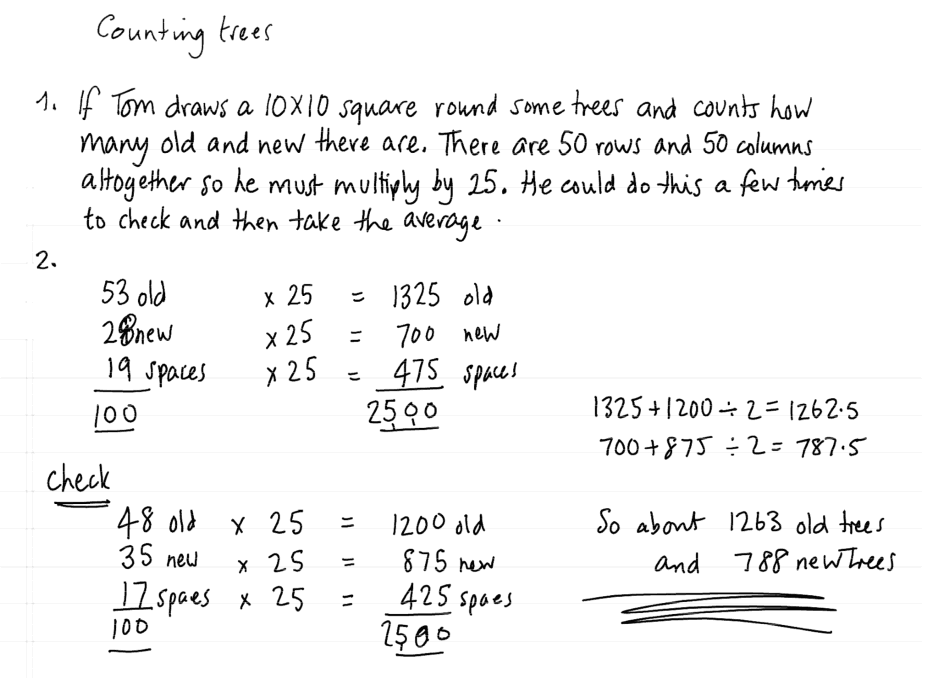 Counting trees
1. If Tom draws a 10X10 square round some trees and counts how
many old and new there are. There are 50 rows and 50 columns
altogether so he must multiply by 25. He could do this a few times
to check and then take the average.
2.
53 old x 25 = 1325 old
28 new x 25 = 700 new
19 spaces x 25 = 475 spaces
100 2500
1325 + 1200 ÷ 2 = 1262.5
700 + 875 ÷ 2 = 787.5
Check
48 old x 25 = 1200 old
35 new x 25 = 875 new
17 spaes x 25 = 425 spaes
100 2500
So about 1263 old trees
and 788 new Trees